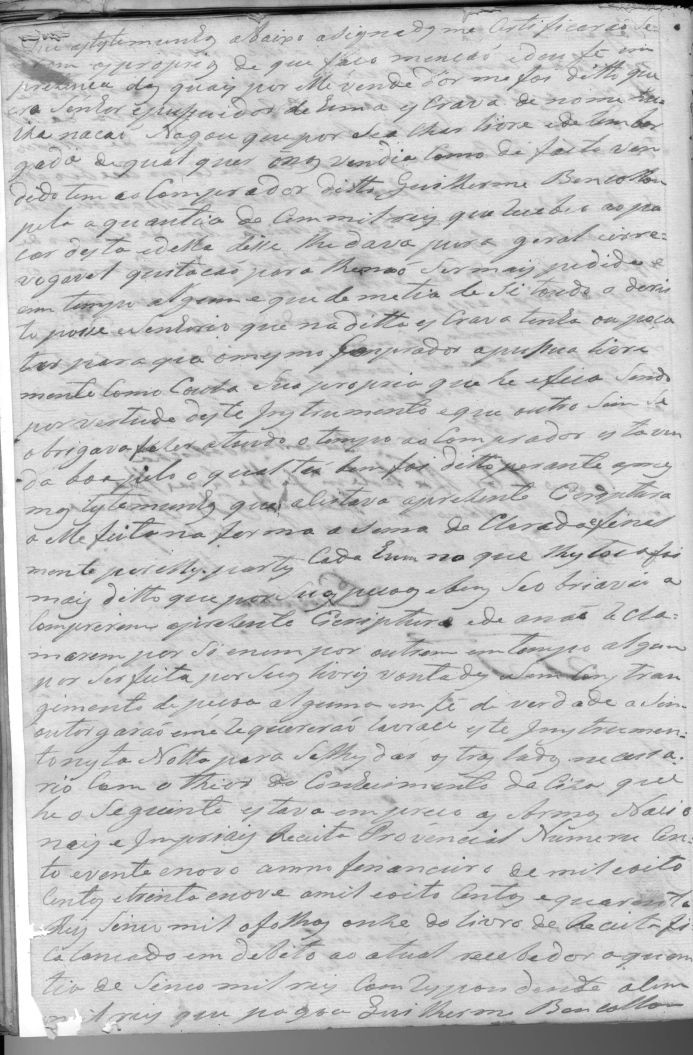 testemunhas abaixo asignadas me Certificarão se
rem os proprios de que faço mensaó e dou fé em
prezença das quais por elle vendedor me foi ditto que
era Senhor e pussuidor de huma escrava de nome
nacaó Nagou que por se achar livre e dezembar
gada de qual quer onus vendia como de facto ven
dido tem ao Comprador ditto Guilherme Bencotton
pela a quantia de Cem mil reis que recebeo ao pa
car desta e della disse lhe dava pura geral e irre=
vogavel quitacaó para lhe naó ser mais pedido
em tempo algum e que demetia de Si todo o derei
to posse e Senhorio que na ditta escrava tenha ou poça
ter para que o mesmo Comprador a pussua livre
mente Como Couza Sua propria que he e fica Sendo
por vertude deste Instrumento e que outro Sim Se
obrigava fazer a tudo o tempo ao Comprador esta ven
da boa pelo o qual tá bem foi ditto perante as mes
mas testemunhas que aceitava a prezente Escriptura
a elle feita na forma a sema de Clarada e final
mente por elles partes Cada hum no que lhes toca foi
mais ditto que por suas pesoas e bens Se obrigavaó a
Comprirem a prezente Escriptura e de anaó recla=
marem por Si e nem por outrem em tempo algum
por Ser feita por Suas livres vontades e Sem Cons tran
gimento de pesoa alguma em fé de verdade a Sim
outorgaraó e me requereraó lavrace este Instrumen=
to nesta Notta para Selhes dar os tras lados necessa=
rio Com o thior do Conhecimento da Ciza que
he o Seguinte estava em preço as Armas Nacio
nais e Imperiais Receita Provencial Numero Cen=
to e vente e nove anno financeiro de mil e oito
Centos e trinta e nove a mil e oito Centos e quarenta
Reis Sinco mil a folhas onze do livro de Receita fi
ca lancado em debito ao atual recebedor a quan
tia de Sinco mil reis Corresponde a Cem
mil reis que pagou Guilherme Bencotton